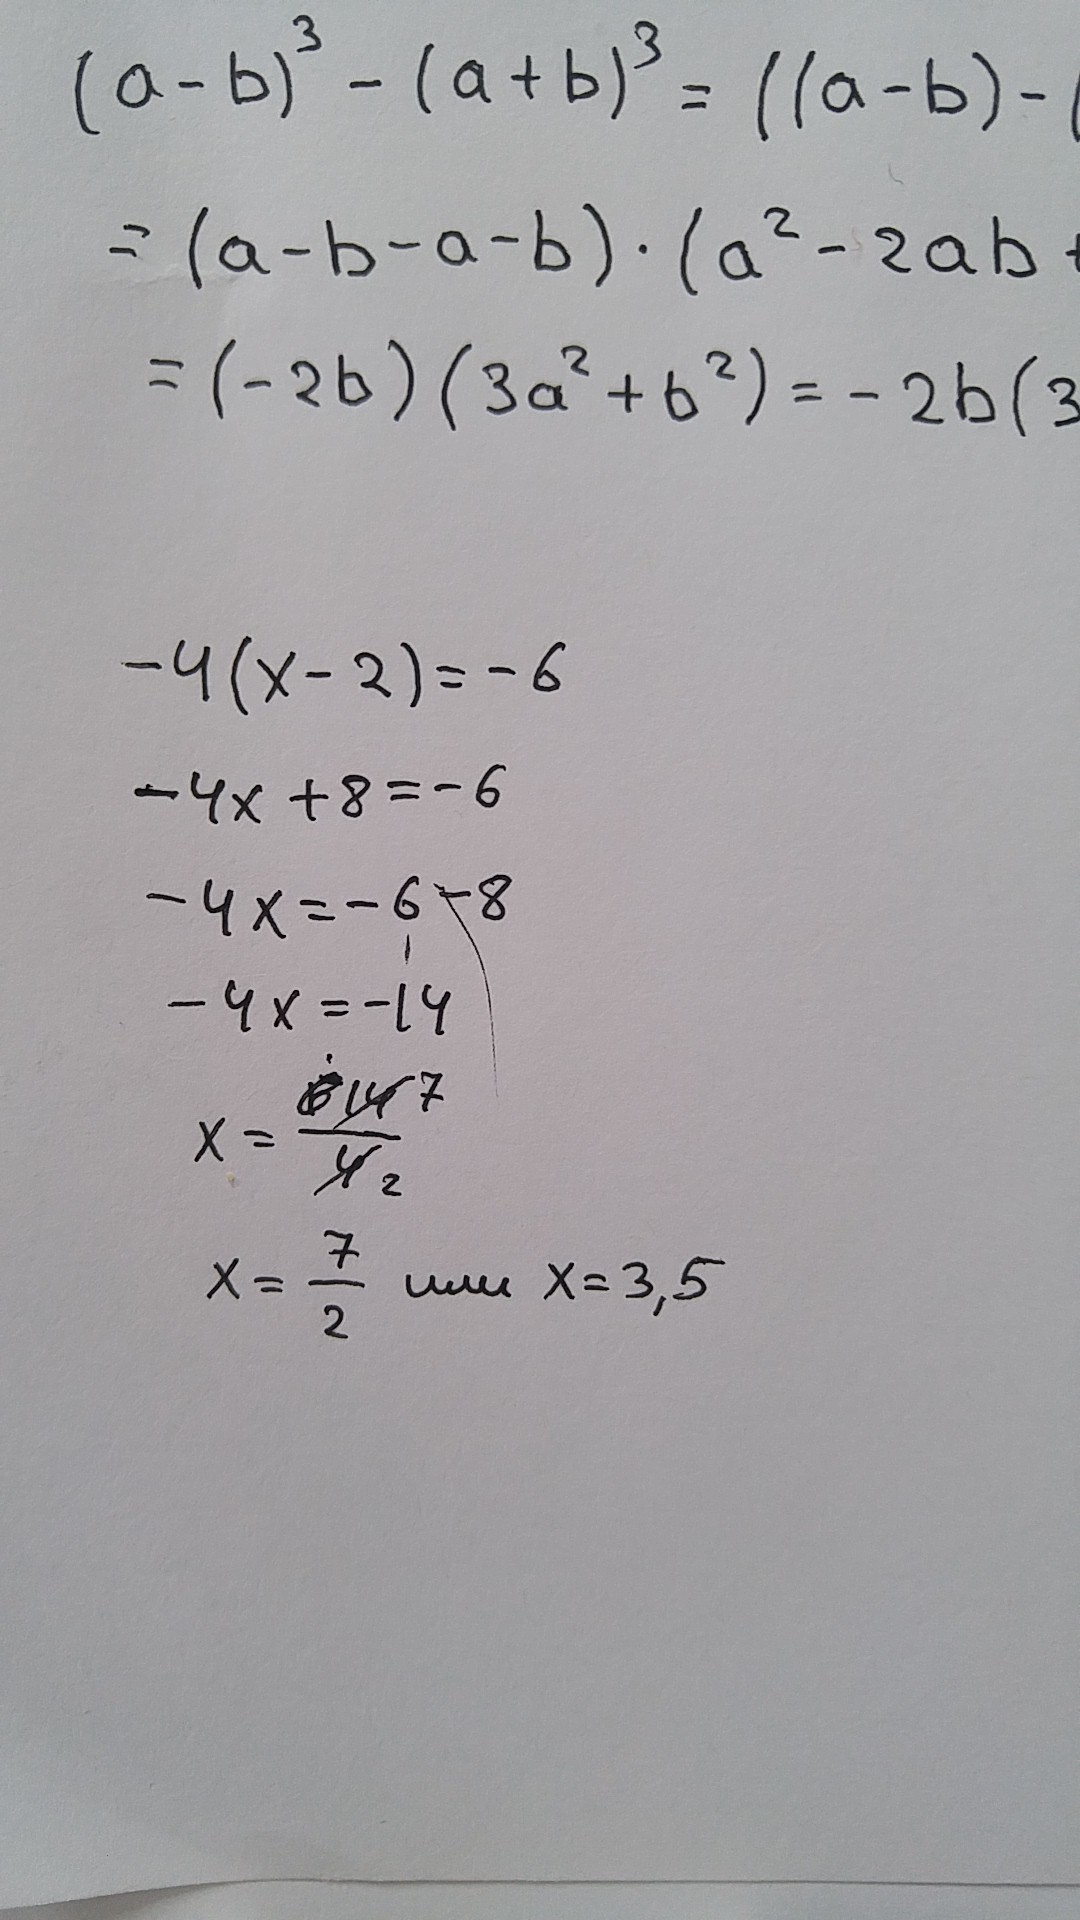 (a-b)³ - (a+b)³ = ((a-b)-(
= (a-b-a-b)·(a²-2ab+
= (-2b)(3a²+b²) = -2b(3
-4(x-2)=-6
-4x+8=-6
-4x=-6-8
-4x=-14
x = 14 7 / 4 2
x = 7/2 или x=3,5